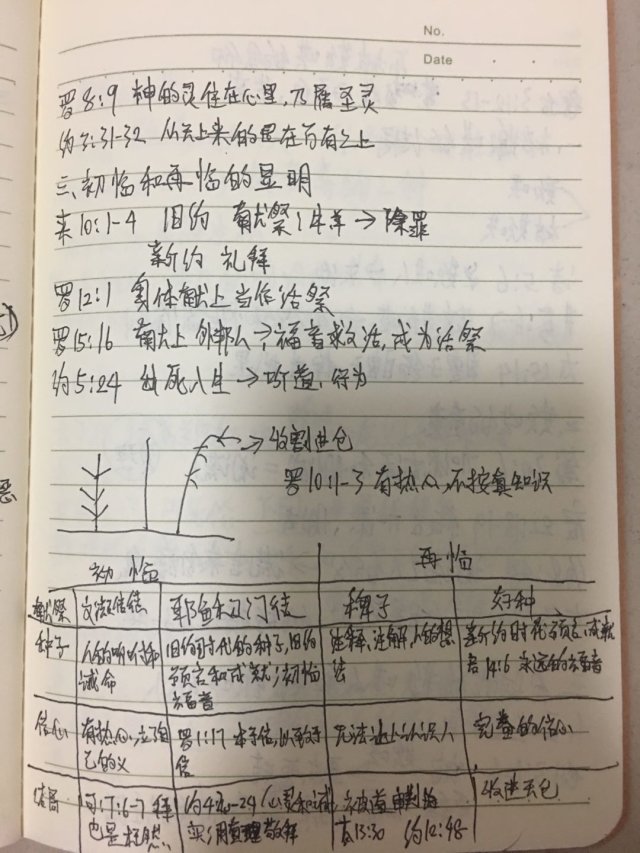 No.
Date
罗8:9 神的灵住在心里,乃属圣灵
约3:31-32 从天上来的是在万有之上
三,初临和再临的显明
来10:1-4 旧约 献祭,牛羊→除罪
新约 礼拜
罗12:1 身体献上当作活祭
罗15:16 献上外邦人→福音救活,成为活祭
约5:24 出死入生→听道,行为
→收割进仓
罗10:1-3 有热心,不按真知识
初临 再临
献祭 文 耶稣和门徒 稗子 好种
种子 人的吩咐和诫命 旧约时代的种子,旧约预言和成就,初临福音 注释,注解,人的想法 新约时代预言,成就 启14:6 永远的福音
信心 有热心,立自己的义 罗1:17 本于信,以至于信 无法 认识人 完整的信心
结局 可7:6-7 拜也是枉然 约4: -24 (心灵和诚实)用真理敬拜 被道审判的 太13:30 约12:48 收进天仓